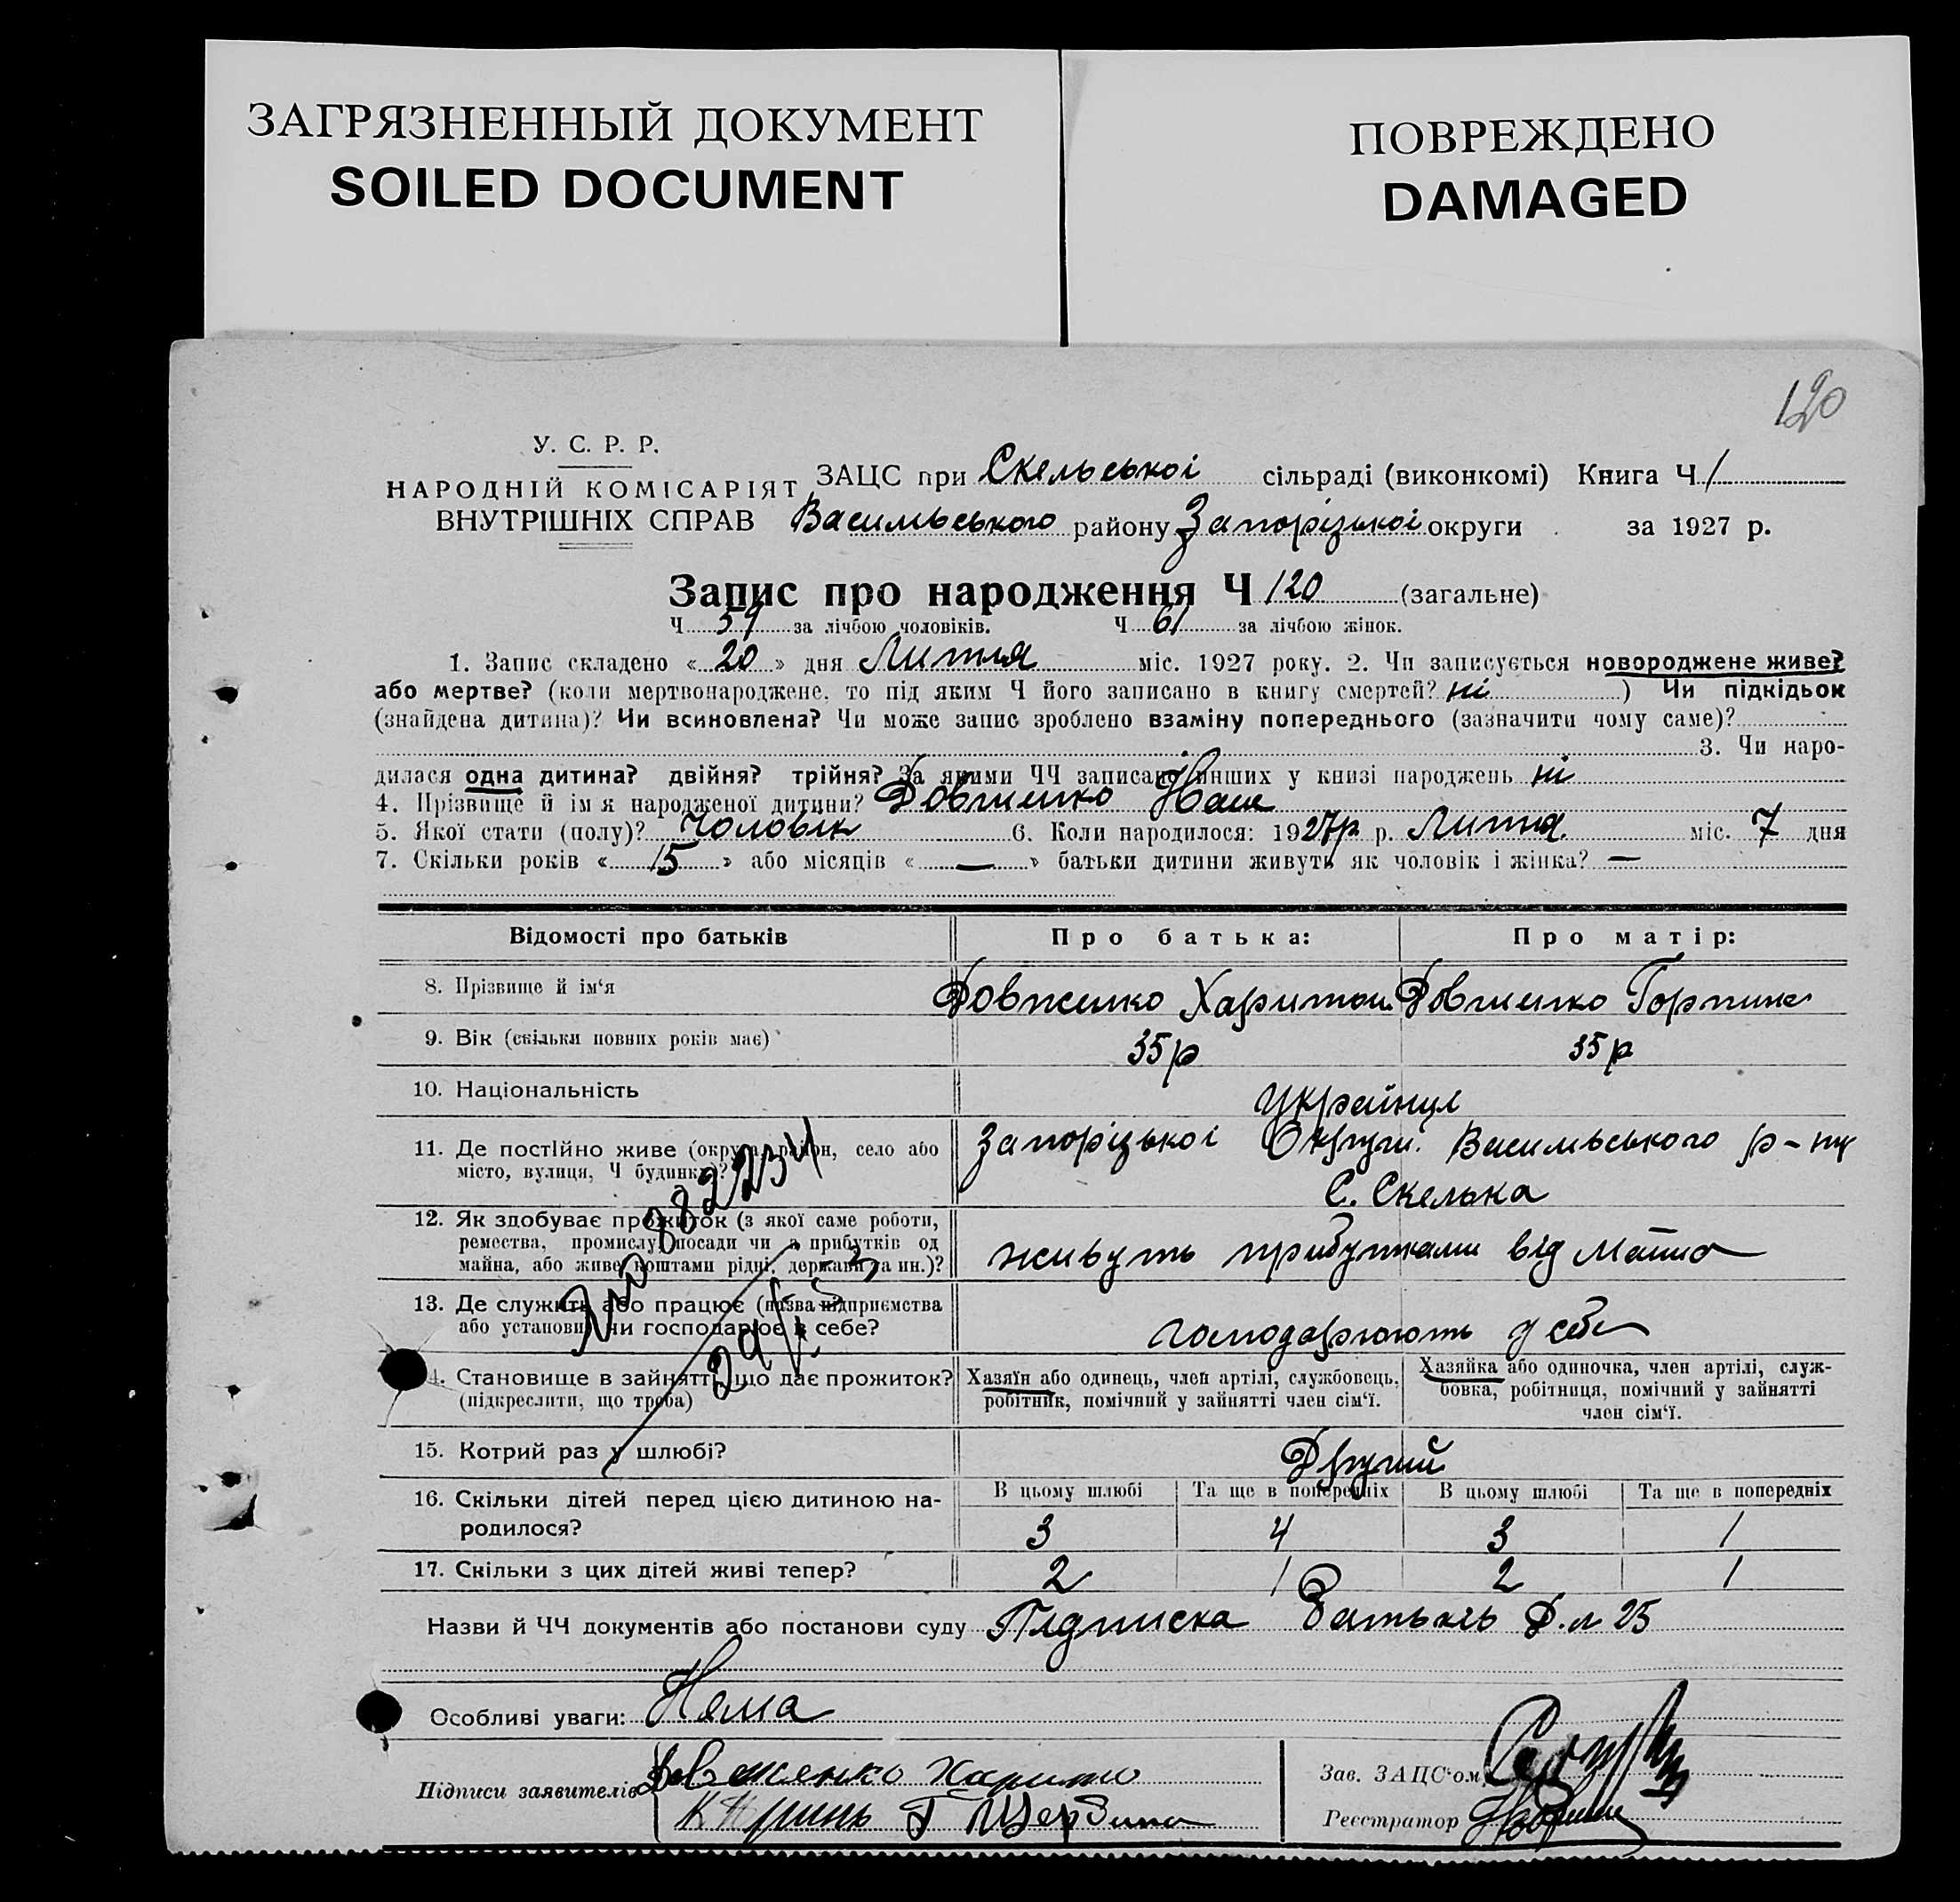 ЗАГРЯЗНЕННЫЙ ДОКУМЕНТ
SOILED DOCUMENT
ПОВРЕЖДЕНО
DAMAGED
120
У. С. Р. Р.
НАРОДНІЙ КОМІСАРІЯТ
ВНУТРІШНІХ СПРАВ
ЗАЦС при Скельської сільраді (виконкомі) Книга Ч 1
Васильського району Запорізької округи за 1927 р.
Запис про народження Ч 120 (загальне)
Ч 59 за лічбою чоловіків. Ч 61 за лічбою жінок.
1. Запис складено « 20 » дня Липня міс. 1927 року. 2. Чи записується новороджене живе?
або мертве? (коли мертвонароджене, то під яким Ч його записано в книгу смертей? ні ) Чи підкідьок
(знайдена дитина)? Чи всиновлена? Чи може запис зроблено взаміну попереднього (зазначити чому саме)?
3. Чи наро-
дилася одна дитина? двійня? трійня? За якими ЧЧ записано инших у книзі народжень ні
4. Прізвище й ім я народженої дитини? Довженко
5. Якої стати (полу)? Чоловік 6. Коли народилося: 1927р р. Липня міс. 7 дня
7. Скільки років « 15 » або місяців « — » батьки дитини живуть як чоловік і жінка? —
Відомості про батьків Про батька: Про матір:
8. Прізвище й ім‘я Довженко Харитон Довженко Горпина
9. Вік (скільки повних років має) 35р 35р
10. Національність Українці
11. Де постійно живе (округа, район, село або
місто, вулиця, Ч будинка)?
Запорізької Округи. Васильського р-ну
С. Скелька
12. Як здобуває прожиток (з якої саме роботи,
ремества, промислу, посади чи з прибутків од
майна, або живе коштами рідні, держави та ин.)?
живуть прибутками від Майна
13. Де служить або працює (назва підприємства
або установи) чи господарює в себе?
господарюють у себе
882234
14. Становище в зайнятті, що дає прожиток?
(підкреслити, що треба)
Хазяїн або одинець, член артілі, службовець,
робітник, помічний у зайнятті член сім‘ї.
Хазяйка або одиночка, член артілі, служ-
бовка, робітниця, помічний у зайнятті
член сім‘ї.
15. Котрий раз у шлюбі? Другий
16. Скільки дітей перед цією дитиною на-
родилося?
В цьому шлюбі Та ще в попередніх В цьому шлюбі Та ще в попередніх
3 4 3 1
17. Скільки з цих дітей живі тепер? 2 1 2 1
Назви й ЧЧ документів або постанови суду Підписка Батьків Д.л 25
Особливі уваги: Нема
Підписи заявителів Довженко Харито
Щербина
Зав. ЗАЦС‘ом
Реєстратор